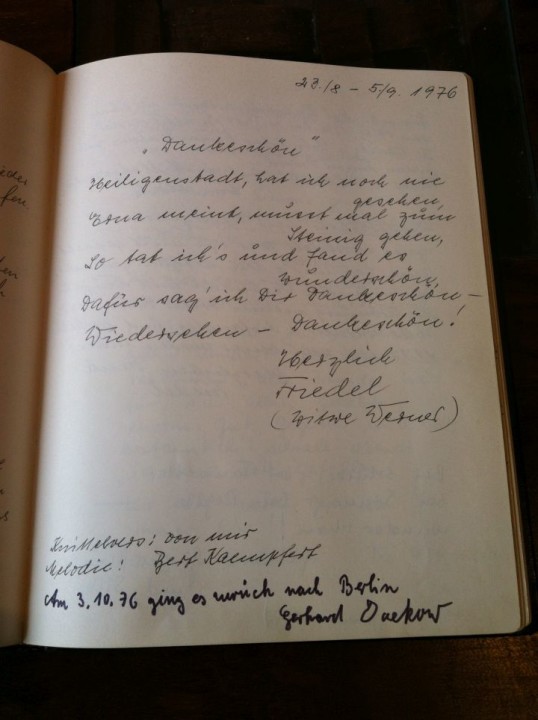 23./8 - 5/9. 1976
„Dankeschön"
Heiligenstadt, hat ich noch nie
gesehen,
Erna meint, müsst mal zum
Steinig gehen,
So tat ich's und fand es
wunderschön,
Dafür sag' ich Dir Dankeschön -
Wiedersehen - Dankeschön!
Herzlich
Friedel
(Witwe Werner)
Knittelvers: von mir
Melodie: Bert Kaempfert
Am 3.10.76 ging es zurück nach Berlin
Gerhard